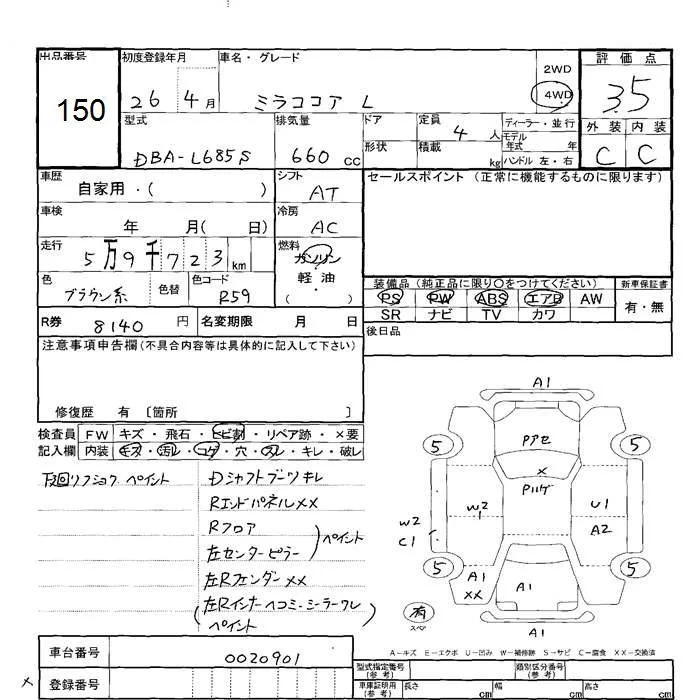 出品番号 初度登録年月 車名・グレード 評価点
150 26 4月 ミラココア L 2WD 4WD 3.5
型式 排気量 ドア 定員 4人 ディーラー・並行 外装 内装
DBA-L685S 660cc 形状 積載 kg モデル年式 年 ハンドル 左・右 C C
車歴 自家用・( ) シフト AT セールスポイント (正常に機能するものに限ります)
車検 年 月( 日) 冷房 AC
走行 5万9千723km 燃料 ガソリン
色 ブラウン系 色替 色コード R59 軽油 ( )
装備品 (純正品に限り○をつけてください) 新車保証書
PS PW ABS エアB AW 有・無
SR ナビ TV カワ
R券 8140円 名変期限 月 日 後日品
注意事項申告欄(不具合内容等は具体的に記入して下さい)
修復歴 有 〔箇所 〕
検査員 FW キズ・飛石・ヒビ割・リペア跡・×要
記入欄 内装 キズ・汚レ・コゲ・穴・スレ・キレ・破レ
下回リフショク ペイント
Dシャフトブーツキレ
RエンドパネルXX
Rフロア
左センターピラー
ペイント
左RフェンダーXX
(左Rインナーヘコミ・シーラーワレ
ペイント
A1
5 5
Pアセ
X
Pハゲ
W2 U1
W2 A2
C1
5 5
A1 XX A1
有
スペア
A1
A-キズ E-エクボ U-凹み W-補修跡 S-サビ C-腐食 XX-交換済
車台番号 0020901 型式指定番号(参考) 類別区分番号(参考)
登録番号 車庫証明用(参考) 長さ cm 幅 cm 高さ cm